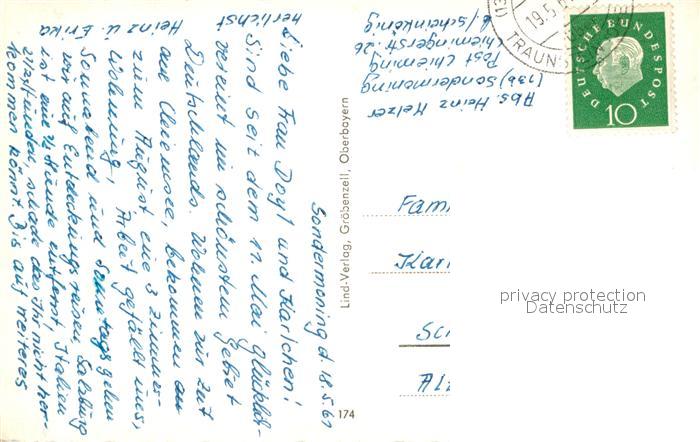 Sondermoning d. 18.5.61
Liebe Frau Dogt und Karlchen!
Sind seit dem 11. Mai glücklich
vereint im schönsten Gebiet
Deutschlands. Wohnen zur Zeit
am Chiemsee, bekommen an
zum August eine 3 Zimmer-
Wohnung, Arbeit gefällt uns,
Sonnabend und Sonntags gehen
wir auf Entdeckungsreisen, Salzburg
ist eine ½ Stunde entfernt, Italien
schade das Ihr nicht her-
kommen könnt Bis auf weiteres
herlichst
Heinz u. Erika
Lind-Verlag, Gröbenzell, Oberbayern
174
Abs. Heinz Melzer
(13b) Sondermoning
Post Chieming
Chiemingerstr. 26
b/Scheinkönig
19.5.6
TRAUNS
DEUTSCHE BUNDESPOST
10
Fam
Karl
Sc
Al
privacy protection
Datenschutz